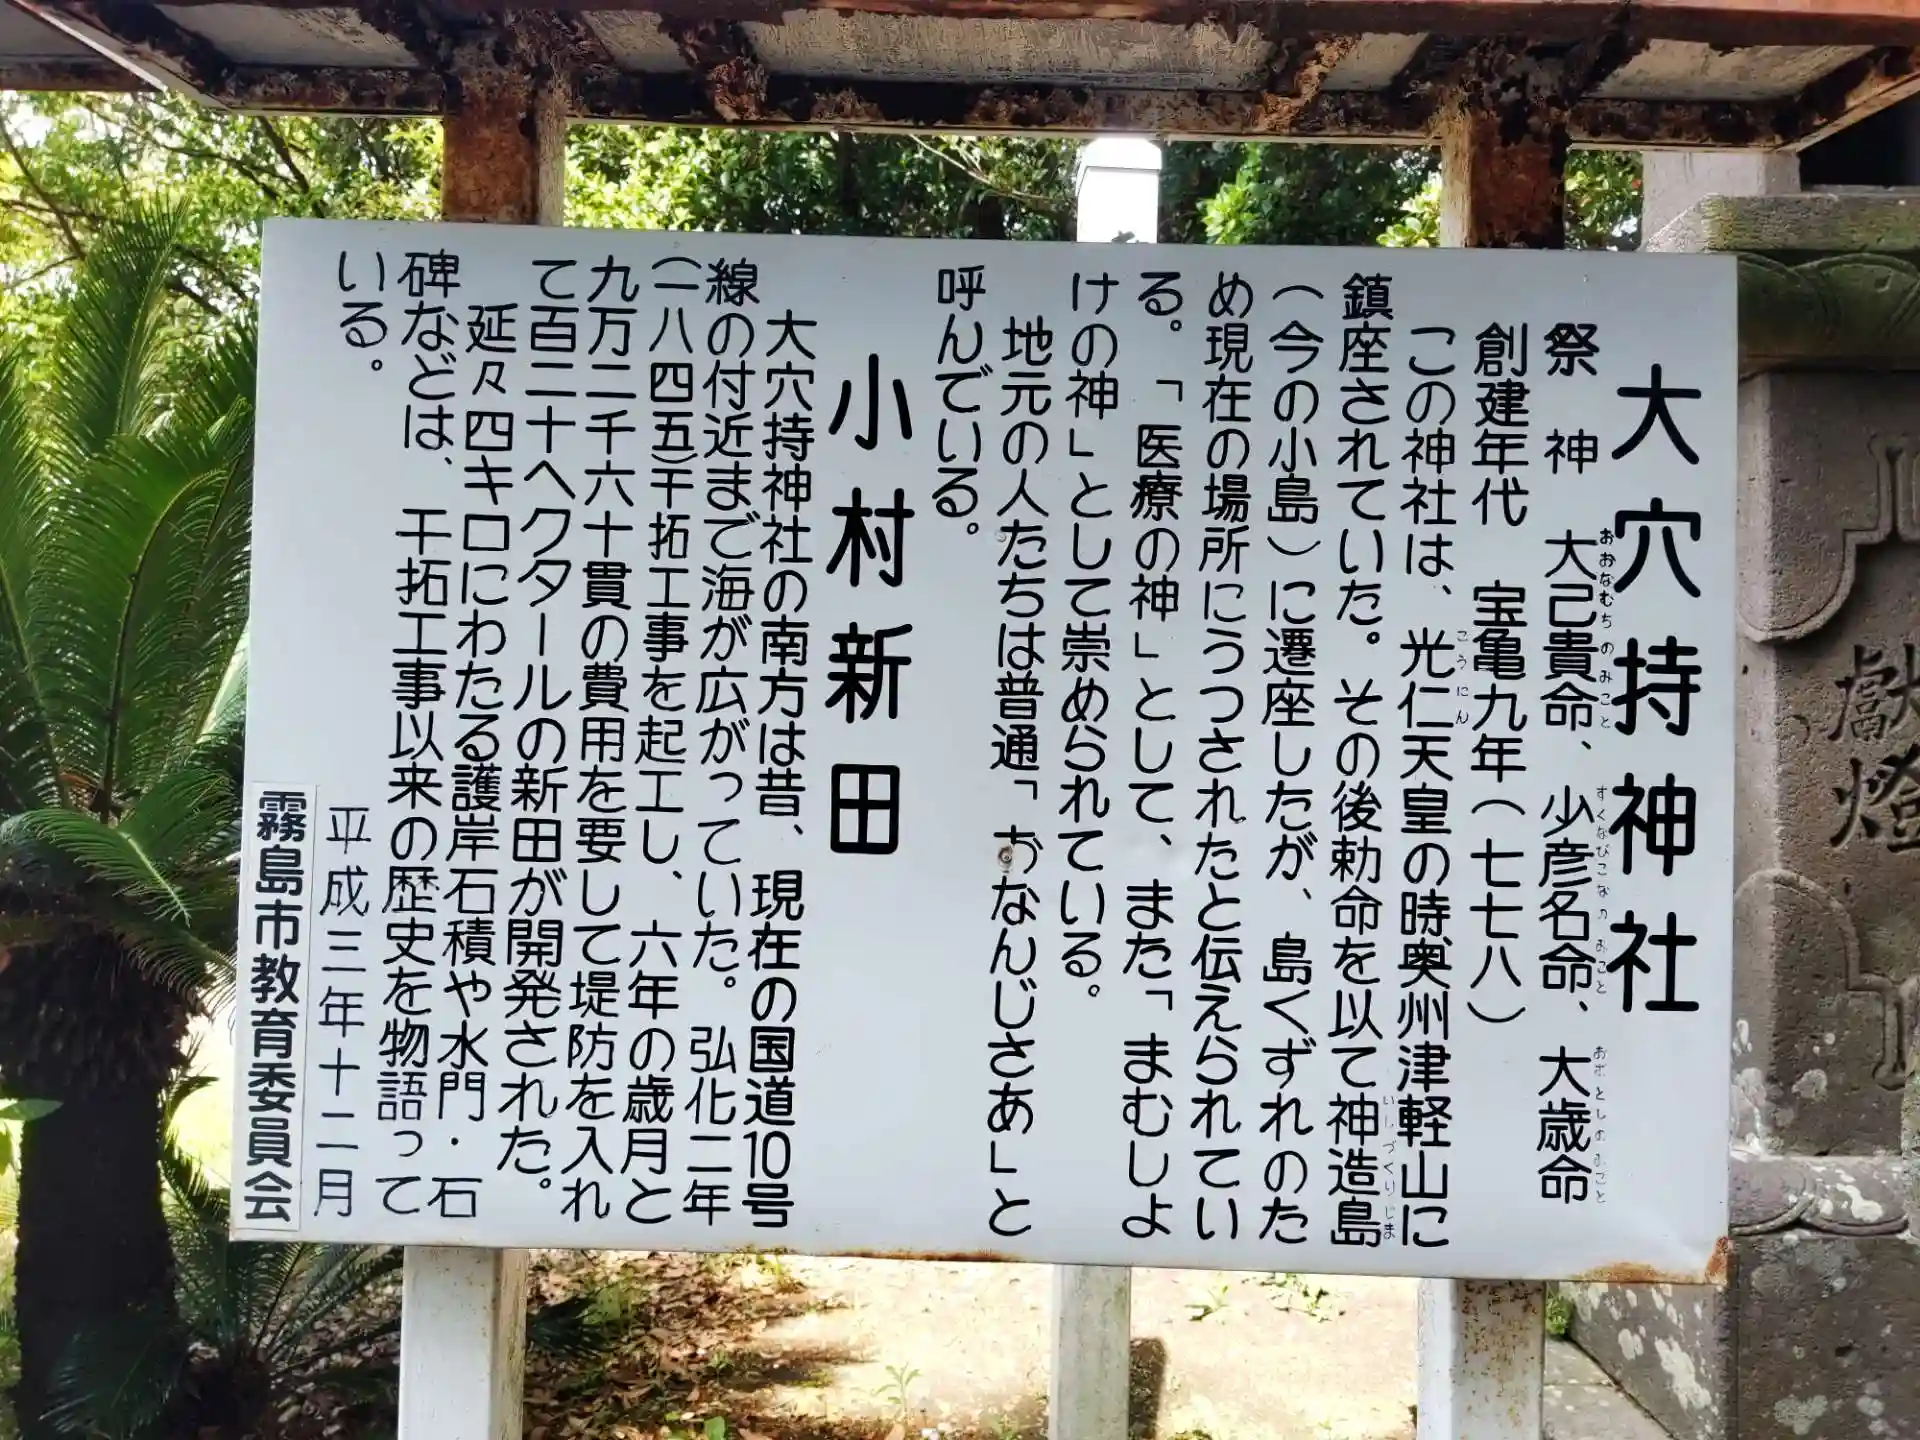 大穴持神社
祭　神　大己貴命、少彦名命、大歳命
おおなむちのみこと
すくなびこなのみこと
おおとしのみこと
創建年代　宝亀九年（七七八）
この神社は、光仁天皇の時奥州津軽山に
こうにん
鎮座されていた。その後勅命を以て神造島
いしづくりじま
（今の小島）に遷座したが、島くずれのた
め現在の場所にうつされたと伝えられてい
る。「医療の神」として、また「まむしよ
けの神」として崇められている。
地元の人たちは普通「おなんじさあ」と
呼んでいる。
小村新田
大穴持神社の南方は昔、現在の国道10号
線の付近まで海が広がっていた。弘化二年
（一八四五）干拓工事を起工し、六年の歳月と
九万二千六十貫の費用を要して堤防を入れ
て百二十ヘクタールの新田が開発された。
延々四キロにわたる護岸石積や水門・石
碑などは、干拓工事以来の歴史を物語って
いる。
平成三年十二月
霧島市教育委員会
献燈